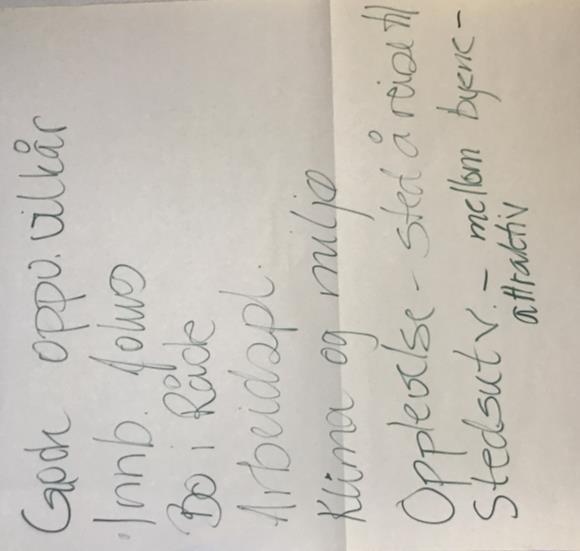 Gode oppv. vilkår
Innb. fokus
Bo i Råde
Arbeidspl.
Klima og miljø
Opplevelse - sted å reise til
Stedsutv. - mellom byene -
attraktiv